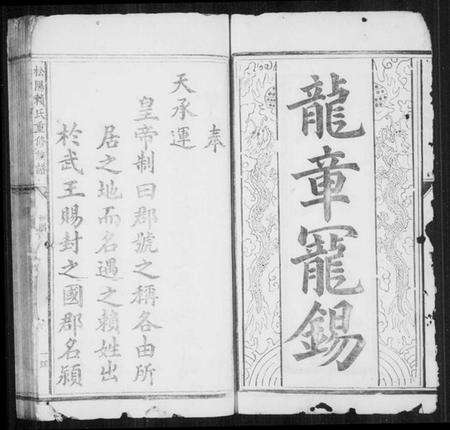 龍章寵錫
奉
天承運
皇帝制曰郡號之稱各由所
居之地而名遇之賴姓出
於武王賜封之國郡名潁
松陽賴氏重修